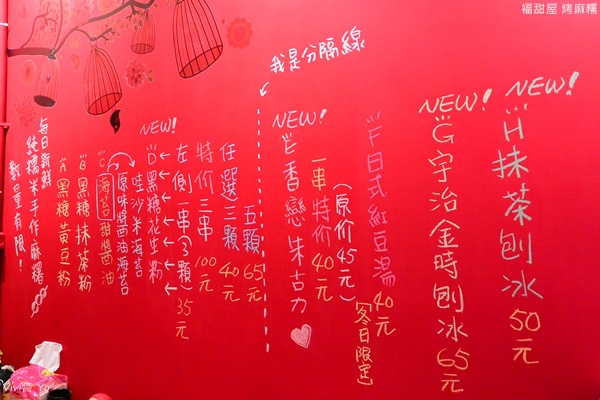 福甜屋 烤麻糬
NEW!
H抹茶刨冰50元
NEW!
G宇治金時刨冰65元
F日式紅豆湯40元
【冬日限定】
(原价45元)
一串特价40元
NEW!
E香戀朱古力
我是分隔線
五顆65元
任選三顆40元
特价三串100元
左側一串(3顆)35元
NEW!
D黑糖花生粉
哇沙米海苔
原味醬油海苔
C海苔甜醬油
B黑糖抹茶粉
A黑糖黃豆粉
每日新鮮
純糯米手作麻糬
數量有限!